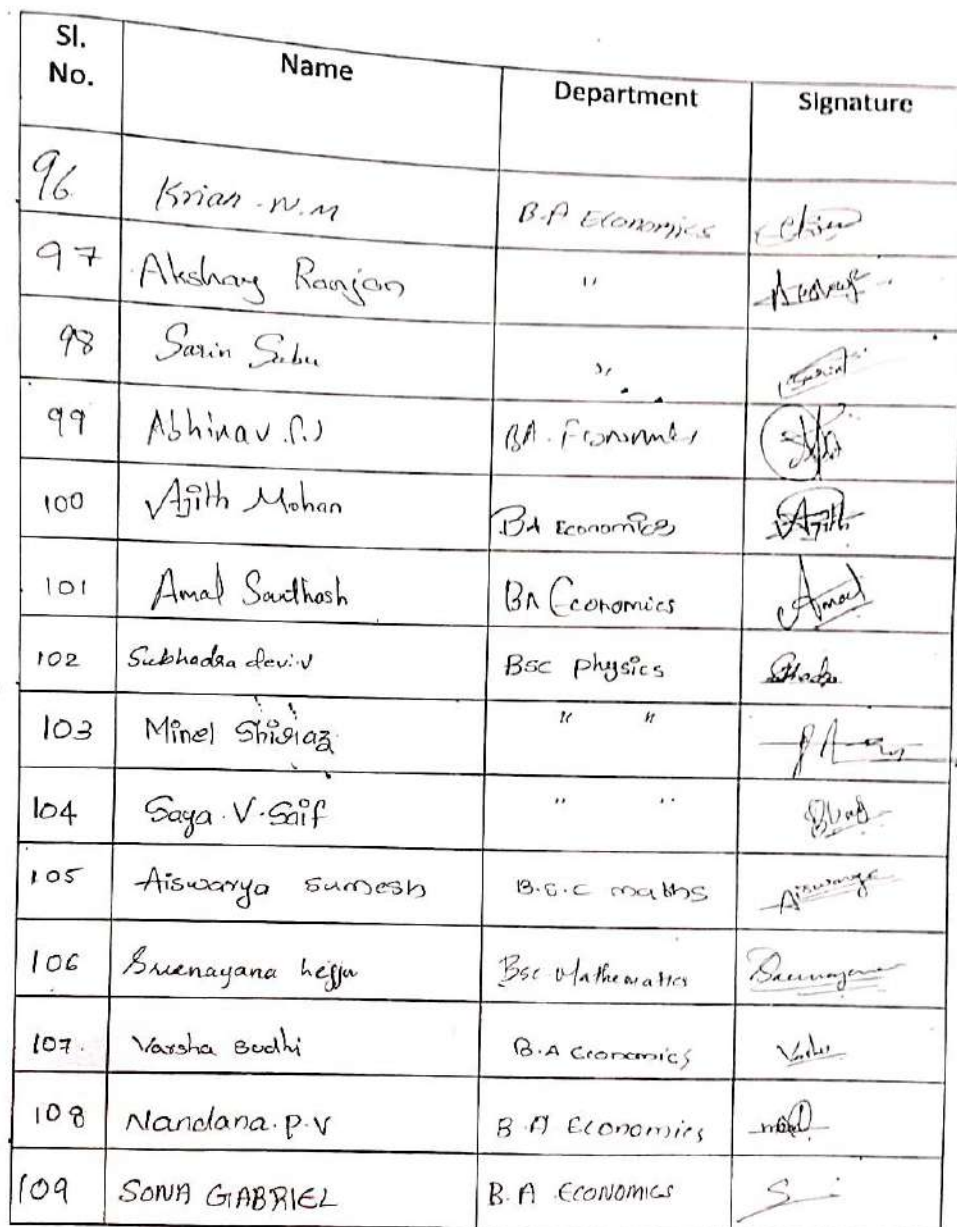 Sl. No. Name Department Signature
96 Krian .N.M B.A Economics
97 Akshay Ranjan "
98 Sarin Sabu "
99 Abhinav BA. Economics
100 Ajith Mohan BA Economics Ajith
101 Amal Santhosh BA Economics Amal
102 Subhadra devi.V Bsc physics
103 Minel Shiraz " "
104 Saya.V.Saif " "
105 Aiswarya sumesh B.S.C maths Aiswarya
106 Sreenayana Bsc Mathematics
107. Varsha Budhi B.A economics
108 Nandana.P.V B.A Economics
109 SONA GABRIEL B.A ECONOMICS